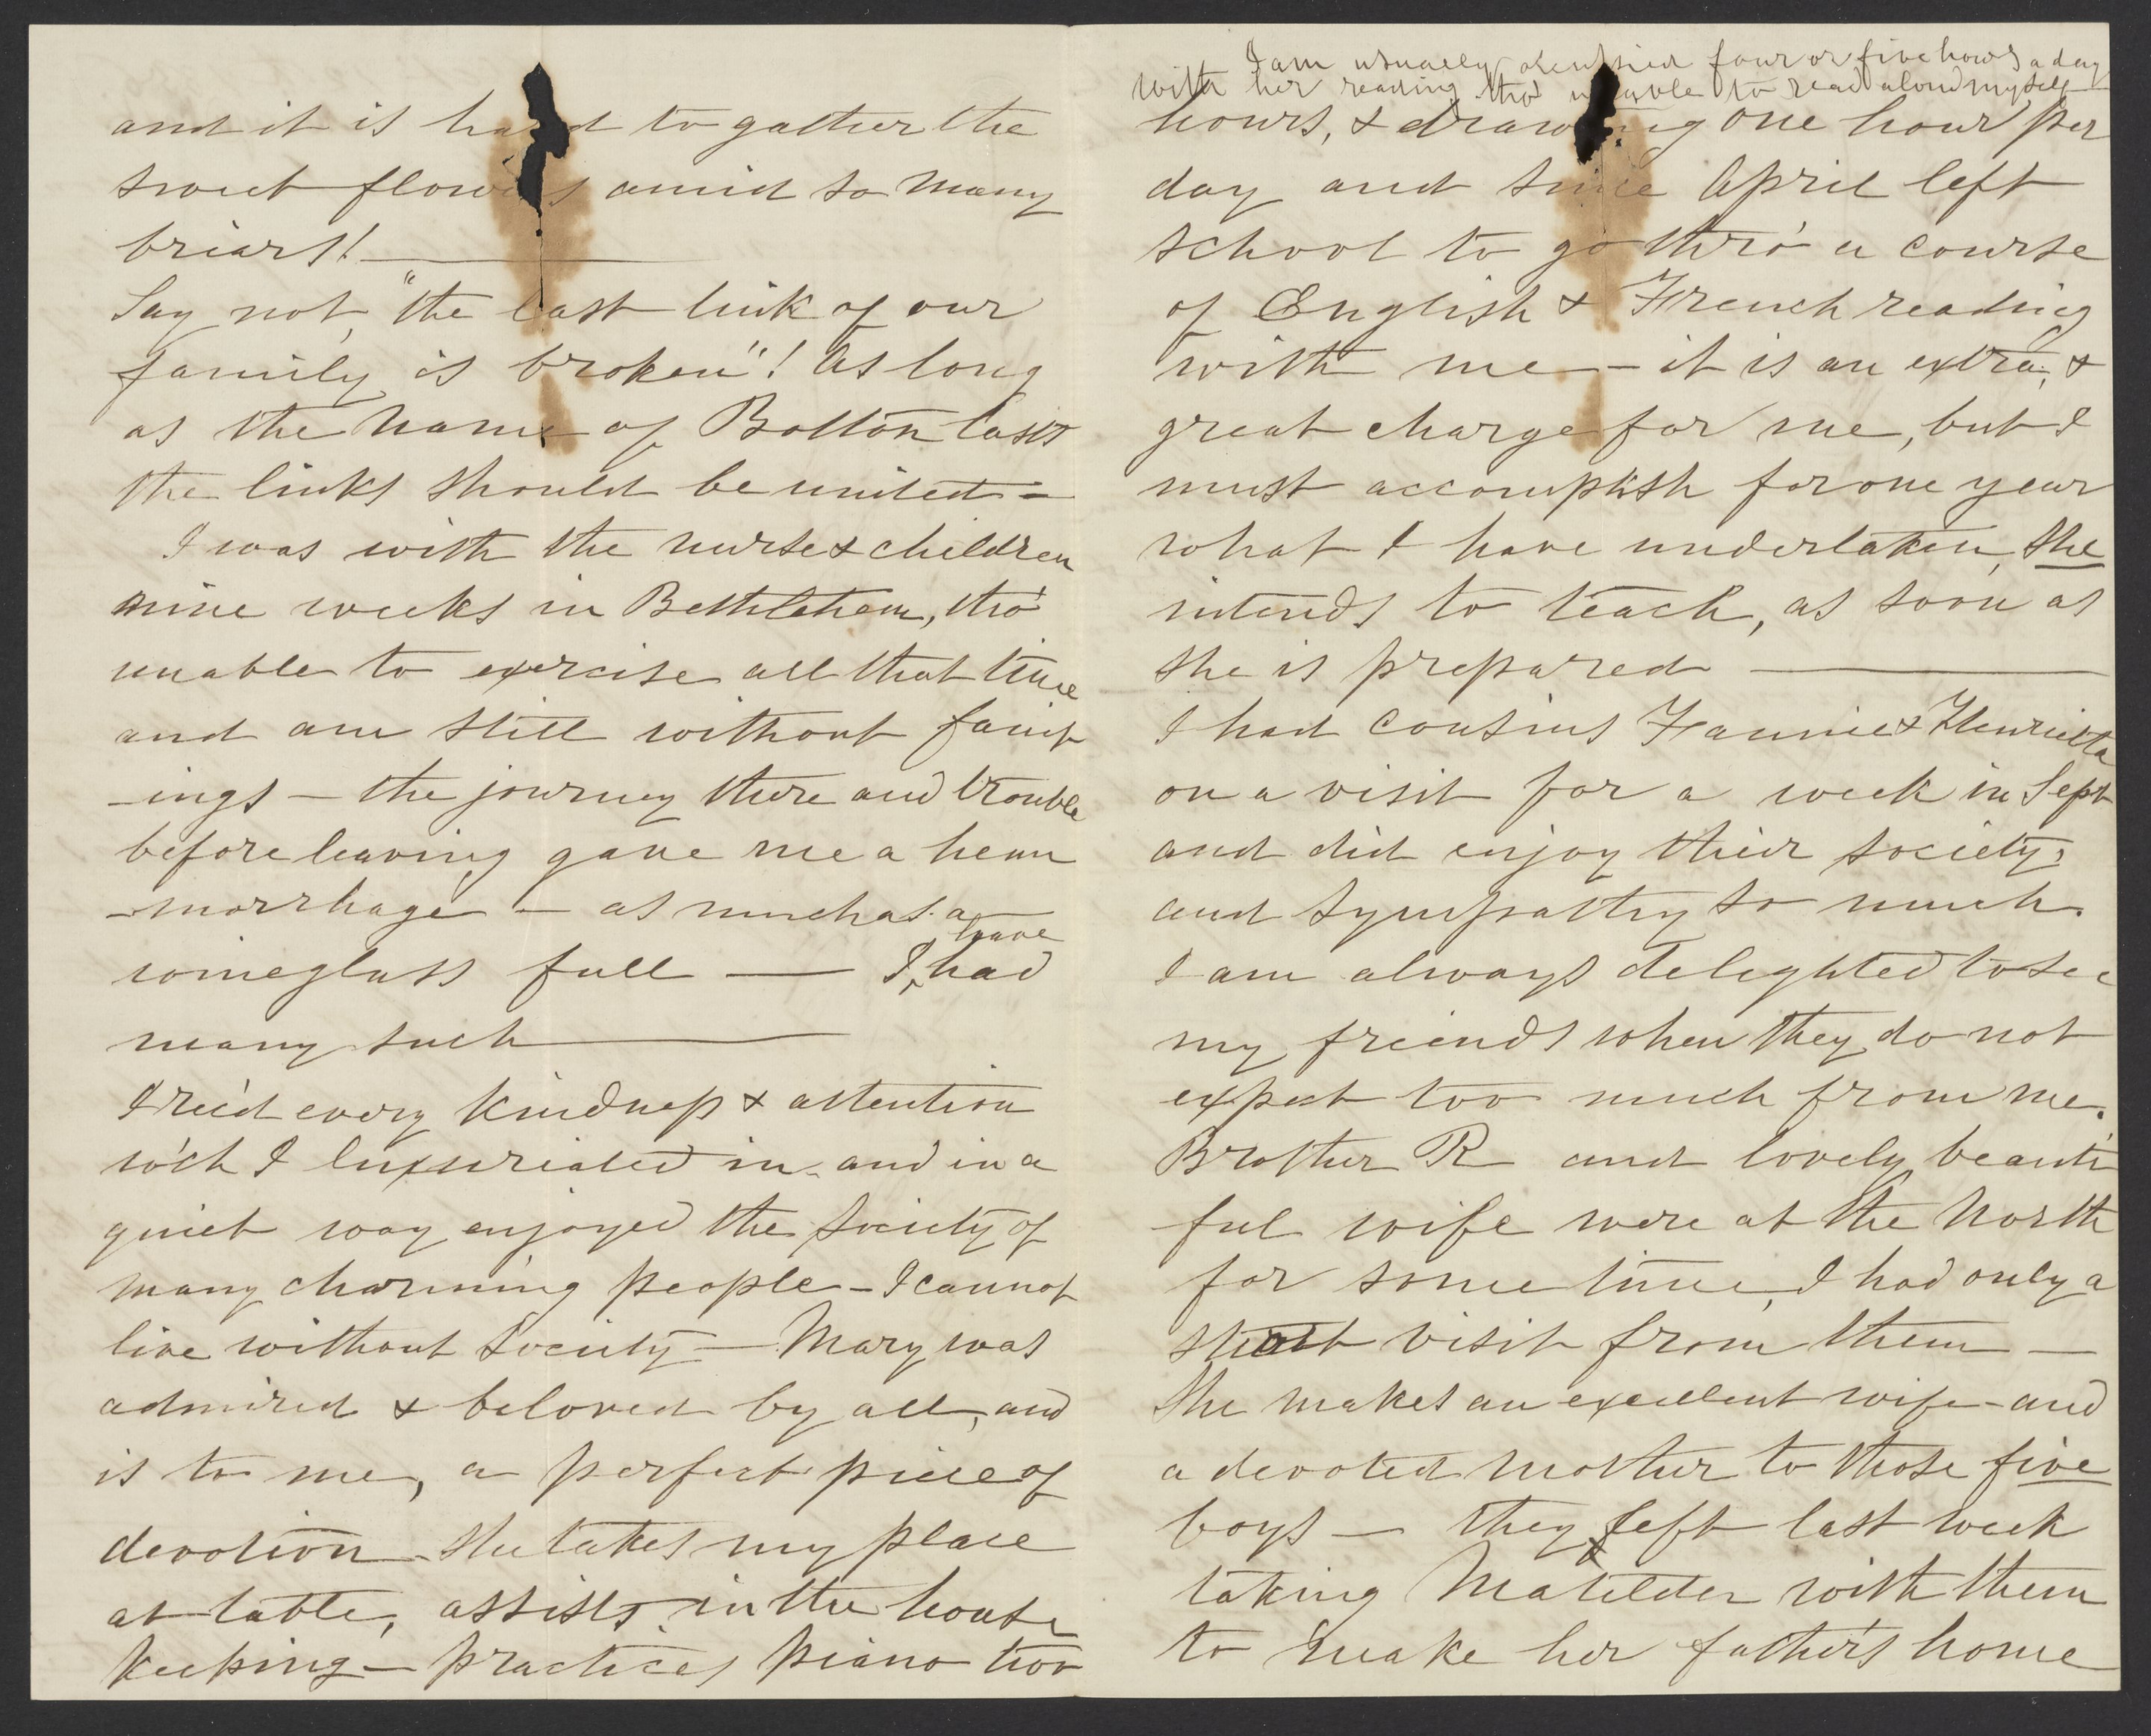 and it is hard to gather the
sweet flowers amid so many
briars!
Say not, "the last link of our
family is broken"! As long
as the name of Bolton lasts
the links should be united -
I was with the nurse & children
nine weeks in Bethlehem, tho'
unable to exercise all that time
and am still without faint
-ings - the journey there and trouble
before leaving gave me a hem
-morrhage - as much as a
wineglass full — I, have had
many such
I rec'd every kindness & attention
w'ch I luxuriated in - and in a
quiet way enjoyed the society of
many charming people - I cannot
live without society - Mary was
admired & beloved by all, and
is to me, a perfect piece of
devotion - she takes my place
at table, assists in the house
keeping - practices piano two
I am usually occupied four or five hours a day
with her reading tho' unable to read aloud myself
hours, & drawing one hour per
day and since April left
school to go thro' a course
of English & French reading
with me - it is an extra, &
great charge for me, but I
must accomplish for one year
what I have undertaken, she
intends to teach, as soon as
she is prepared
I had cousins Fannie & Henrietta
on a visit for a week in Sept
and did enjoy their society,
and sympathy so much.
I am always delighted to see
my friends when they do not
expect too much from me.
Brother R and lovely beauti
ful wife were at the North
for some time, I had only a
short visit from them —
She makes an excellent wife - and
a devoted mother to those five
boys — they left last week
taking Matilda with them
to make her father's home